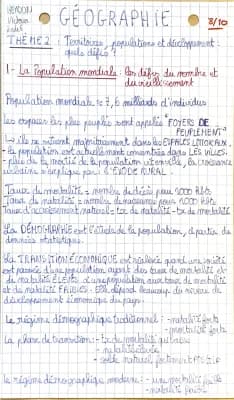 GÉOGRAPHIE
3/10
THÈME 2 : Territoires, populations et développement :
quels défis ?
1 - La Population mondiale : les défis du nombre et
du vieillissement
Population mondiale ≈ 7,6 milliards d'individus
Les espaces les plus peuplés sont appelés "FOYERS DE
PEUPLEMENT"
ils se situent majoritairement dans les ESPACES LITTORAUX.
- la population est actuellement concentrée dans LES VILLES.
- plus de la moitié de la population est urbaine, la croissance
urbaine s'explique par l'EXODE RURAL.
Taux de mortalité = nombre de décès pour 1000 hbts
Taux de natalité = nombre de naissances pour 1000 hbts
Taux d'accroissement naturel = tx de natalité - tx de mortalité
La DÉMOGRAPHIE est l'étude de la population, à partir de
données statistiques.
La TRANSITION ÉCONOMIQUE est réalisée quand une société
est passée d'une population ayant des taux de mortalité et
de natalité ÉLEVÉS à une population aux taux de mortalité
et de natalité FAIBLES. Cela dépend beaucoup du niveau de
développement économique du pays.
Le régime démographique traditionnel : - natalité forte
- mortalité forte
La phase de transition : - tx de mortalité qui baisse
- natalité élevée
- solde naturel fortement POSITIF
Le régime démographique moderne : - une mortalité faible
- natalité faible